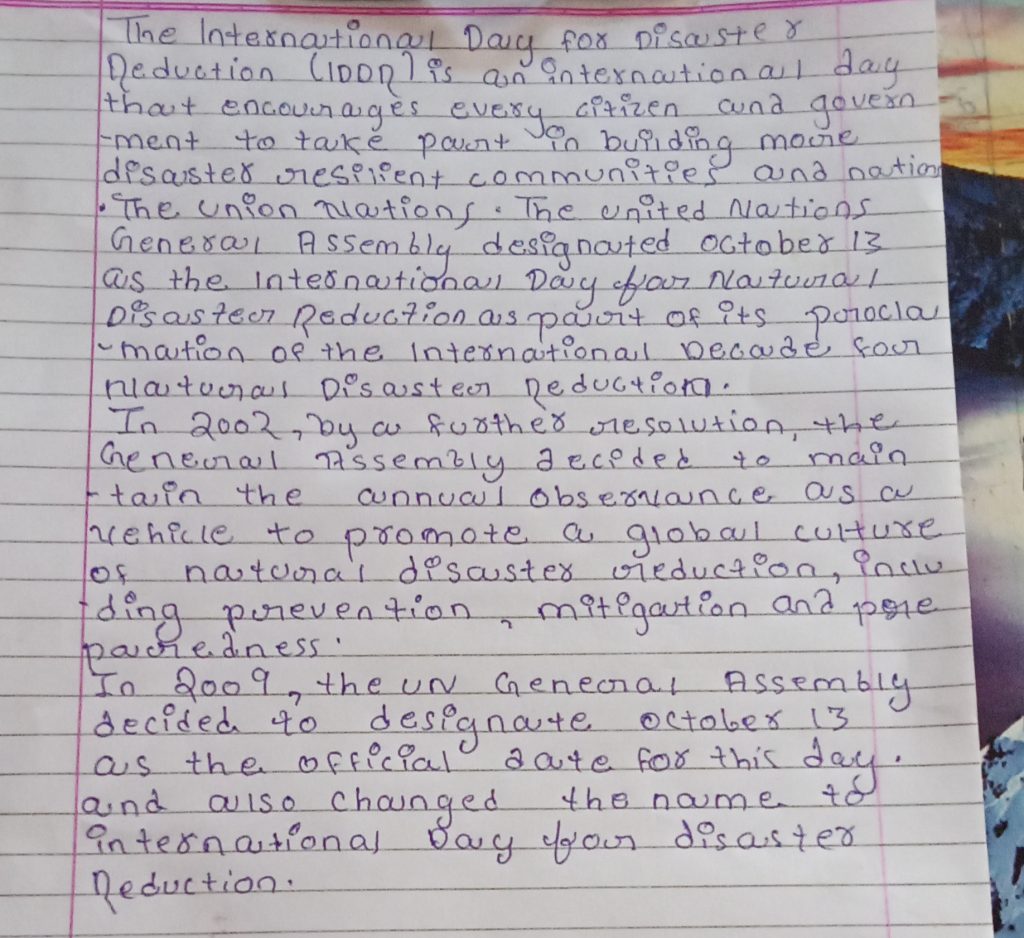 The International Day for Disaster
Reduction (IDDR) is an international day
that encourages every citizen and govern
-ment to take part in building more
disaster resilient communities and nation
. The Union Nations. The united Nations
General Assembly designated October 13
as the International Day for Natural
Disaster Reduction as part of its procla
-mation of the International Decade for
Natural Disaster Reduction.
In 2002, by a further resolution, the
General Assembly decided to main
-tain the annual observance as a
vehicle to promote a global culture
of natural disaster reduction, inclu
-ding prevention, mitigation and pre
paredness.
In 2009, the UN General Assembly
decided to designate October 13
as the official date for this day.
and also changed the name to
international Day for disaster
Reduction.